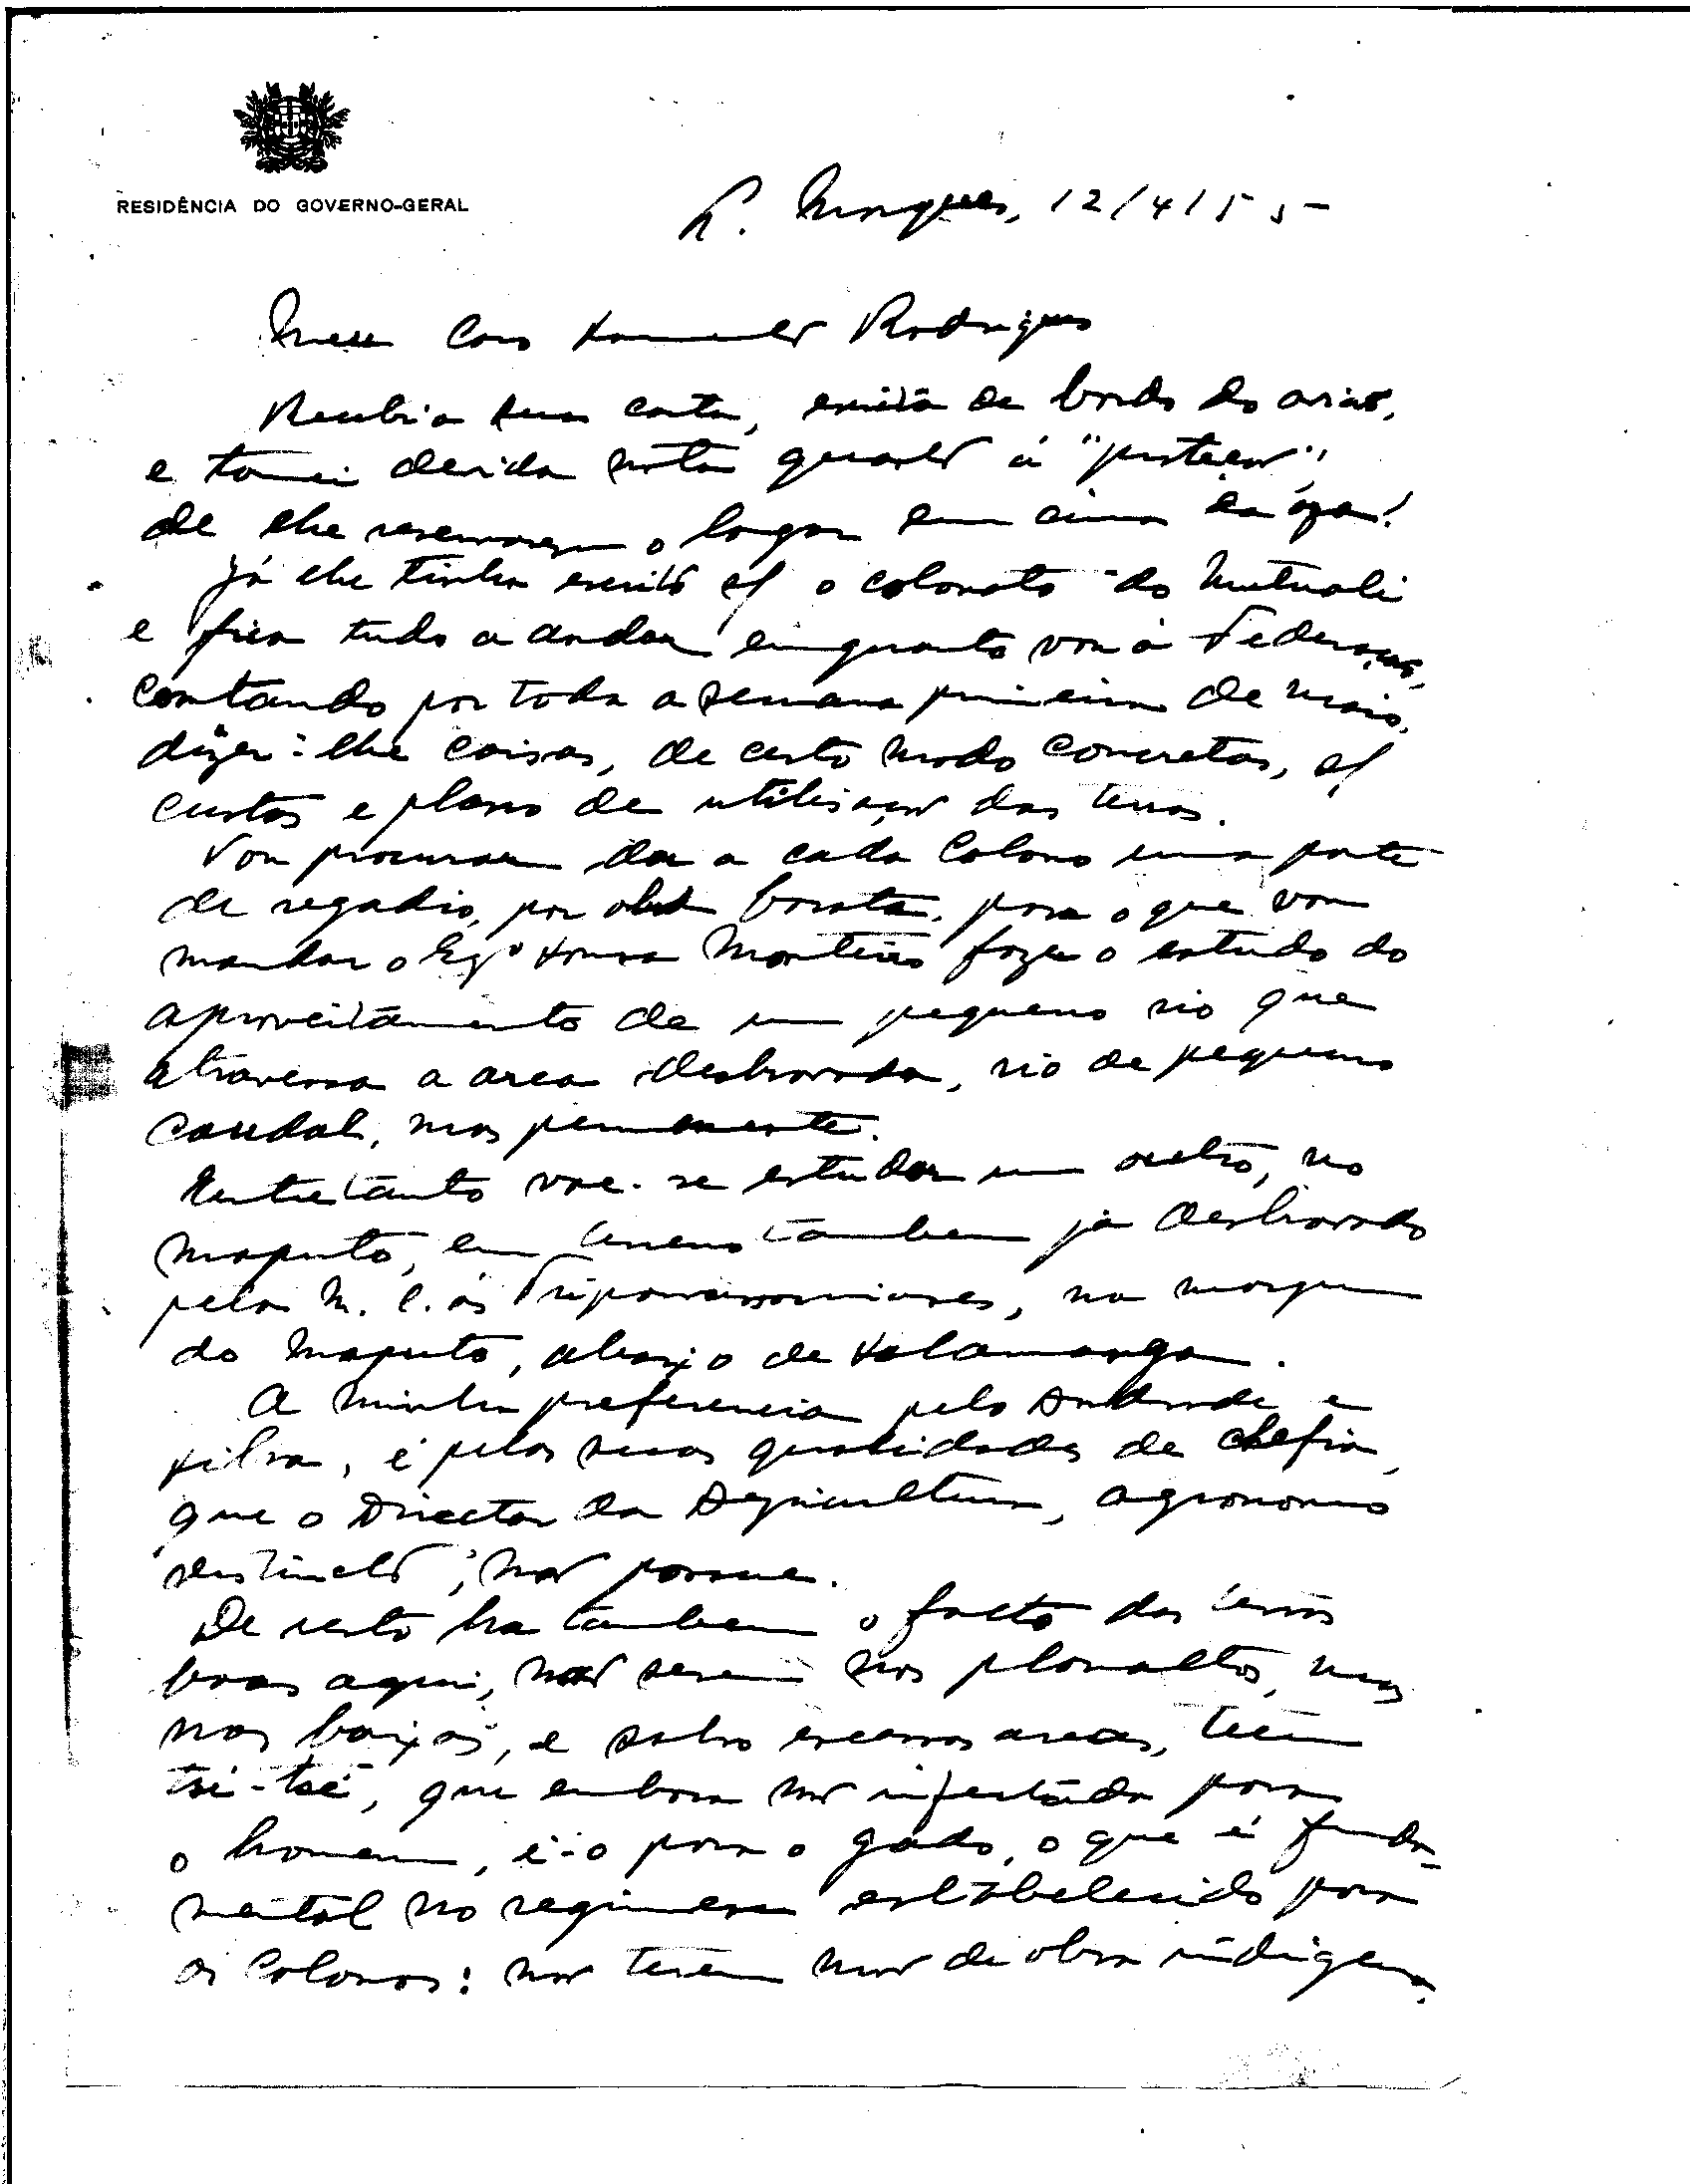 RESIDÊNCIA DO GOVERNO-GERAL
L. Marques, 12/4/55
Meu Caro Sarmento Rodrigues
Recebi a sua carta, escrita de bordo do avião,
e tomei devida nota quanto á
de lhe reservarem o lugar em cima da aza!
Já lhe tinha escrito s/ o colonato do Mutuali
e fica tudo a andar emquanto vou á Federação,
contando por toda a semana primeira de Maio,
dizer-lhe coisas, de certo modo concretas, s/
custos e plano de utilisação das terras.
Vou procurar dar a cada colono uma parte
de regadio, por obra barata, para o que vou
mandar o Engº Sousa Monteiro fazer o estudo do
aproveitamento de um pequeno rio que
atravessa a area desbravada, rio de pequeno
caudal, mas permanente.
Entretanto vae-se estudar um outro, no
Maputo, em terreno tambem já desbravado
pela M. C. ás Tripanossomiases, na margem
do Maputo, abaixo de Salamanga.
A minha preferencia pelo Andrade e
Silva, é pelas suas qualidades de chefia,
que o Director da Agricultura, agronomo
distincto, não possue.
De resto ha tambem o facto das terras
boas aqui, não serem nos planaltos, mas
nas baixas, e salvo escassas areas, teem
tsé-tsé, que embora não infectada para
o homem, é-o para o gado, o que é funda-
mental no regimen estabelecido para
os colonos: não terem mão de obra indigena.